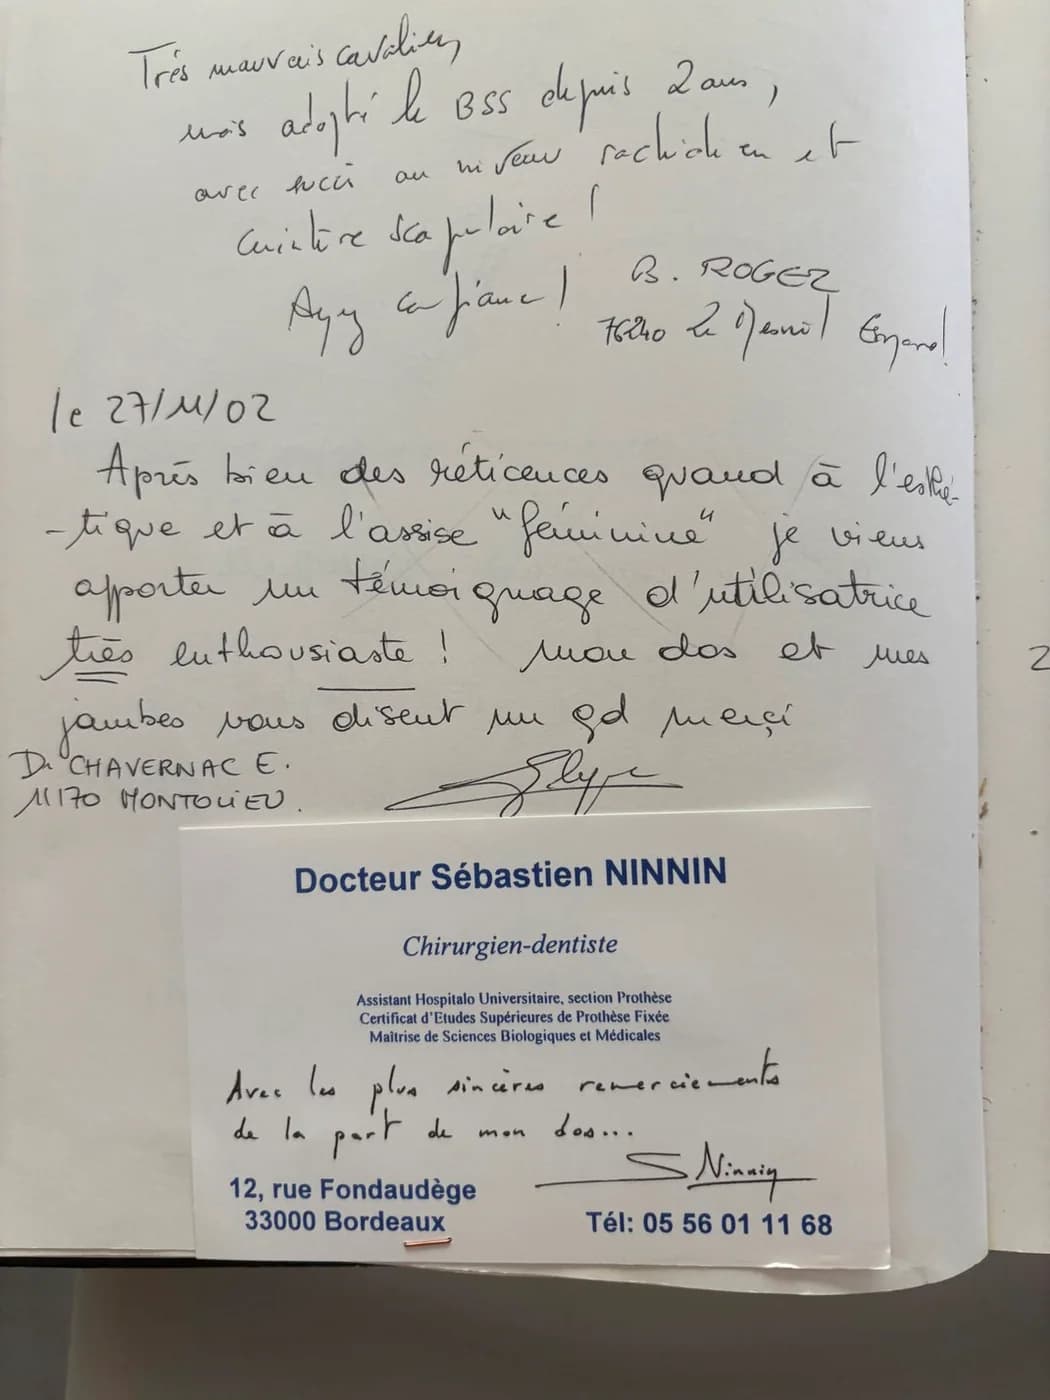 Très mauvais cavalier,
mais adopté le BSS depuis 2 ans,
avec succès au niveau rachidien et
ceinture scapulaire !
Ayez confiance !
B. ROGEZ
76240 Le Mesnil Esnard !
le 27/11/02
Après bien des réticences quand à l'esthé-
-tique et à l'assise "féminine" je viens
apporter un témoignage d'utilisatrice
très enthousiaste ! mon dos et mes
jambes vous disent un gd merçi
Dr CHAVERNAC E.
11170 MONTOLIEU.
Docteur Sébastien NINNIN
Chirurgien-dentiste
Assistant Hospitalo Universitaire, section Prothèse
Certificat d'Etudes Supérieures de Prothèse Fixée
Maîtrise de Sciences Biologiques et Médicales
Avec les plus sincères remerciements
de la part de mon dos...
S Ninnin
12, rue Fondaudège
33000 Bordeaux
Tél: 05 56 01 11 68
2